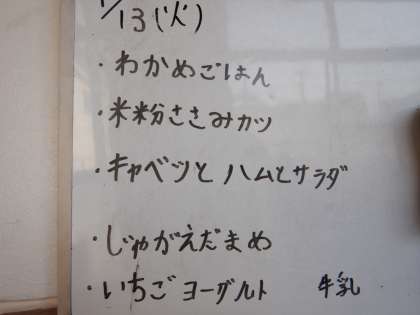 1/13(火)
・わかめごはん
・米粉ささみカツ
・キャベツとハムとサラダ
・じゃがえだまめ
・いちごヨーグルト 牛乳